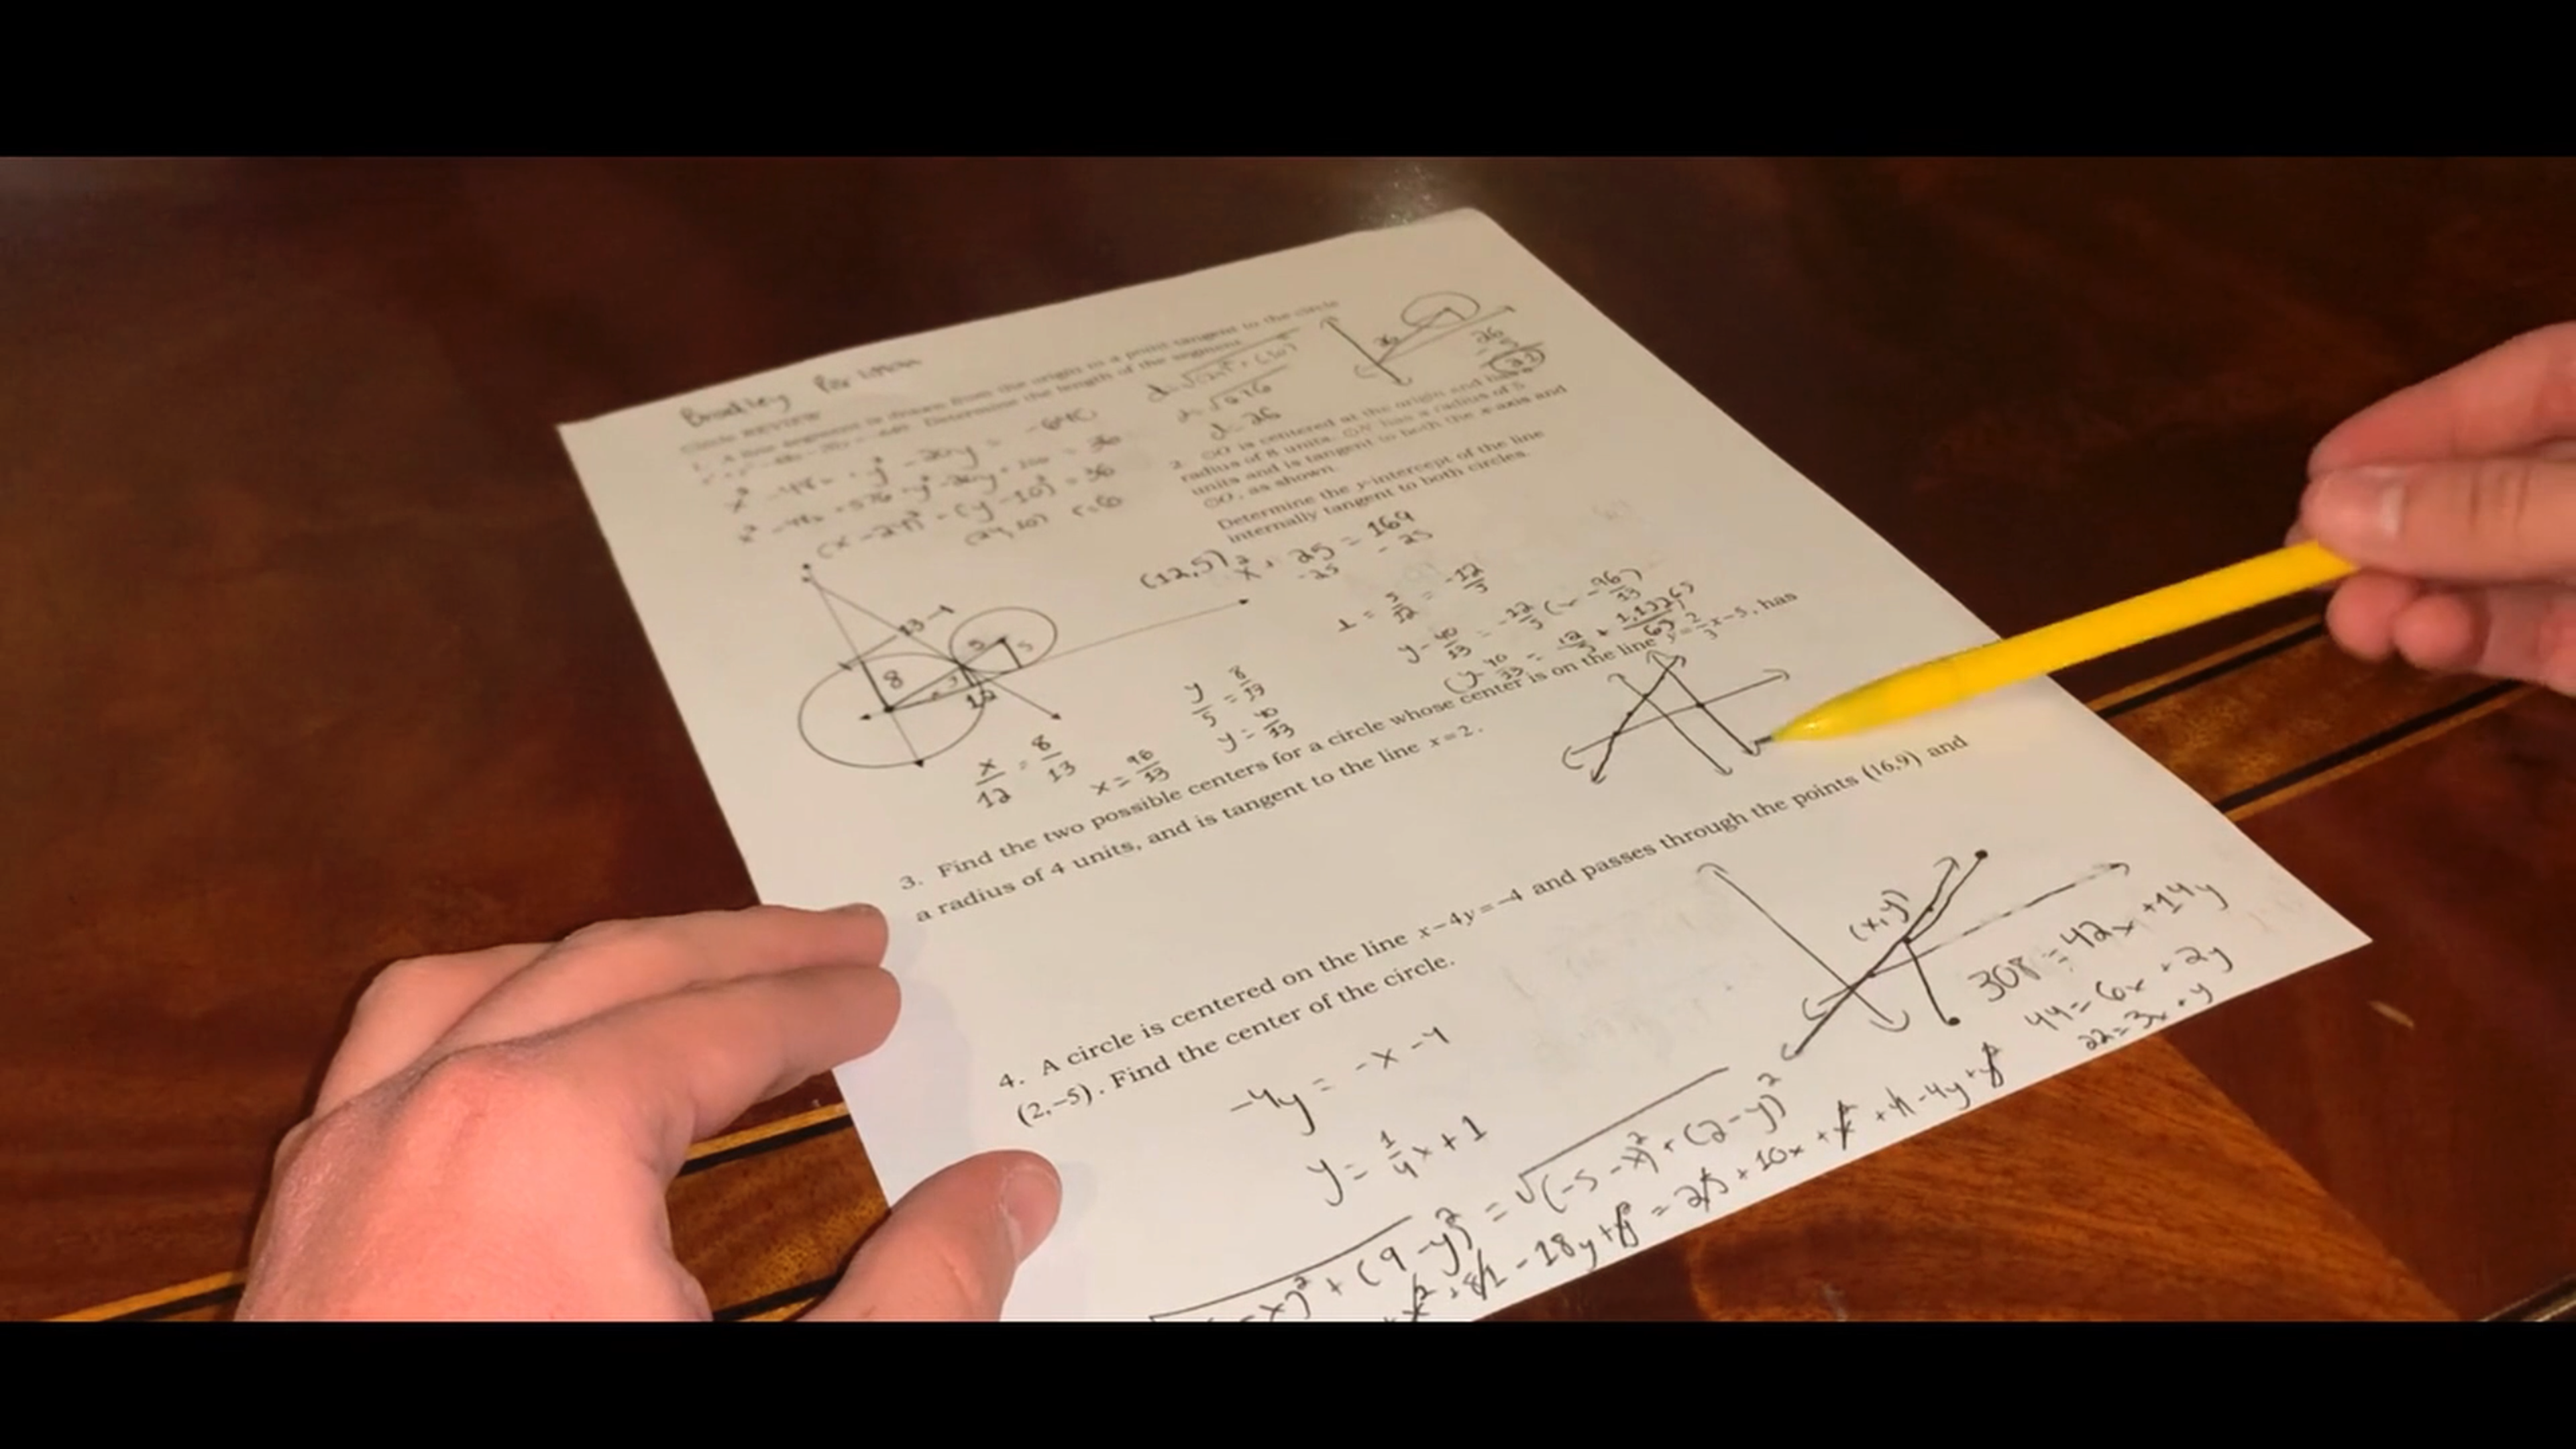 Bradley
Circle REVIEW
1. A line segment is drawn from the origin to a point tangent to the circle
Determine the length of the segment.
(x - 24)² + (y - 10)² = 36
(24, 10) r = 6
d = 26
26
2. ⊙O is centered at the origin and has a
radius of 8 units. ⊙N has a radius of 5
units and is tangent to both the x-axis and
⊙O, as shown.
Determine the y-intercept of the line
internally tangent to both circles.
(12,5) x² + 25 = 169
-25 - 25
8
5
5
12
x/12 = 8/13
x = 96/13
y/5 = 8/13
y = 40/13
⊥ = 5/12 = -12/5
y - 40/13 = -12/5 (x - 96/13)
3. Find the two possible centers for a circle whose center is on the line y = 2/3 x - 5, has
a radius of 4 units, and is tangent to the line x = 2.
4. A circle is centered on the line x - 4y = -4 and passes through the points (16,9) and
(2,-5). Find the center of the circle.
-4y = -x - 4
y = 1/4 x + 1
(x,y)
308 = 42x + 14y
44 = 6x + 2y
22 = 3x + y
-x)² + (9 - y)² = √(-5 - x)² + (2 - y)²
+ x² + 81 - 18y + y² = 25 + 10x + x² + 4 - 4y + y²